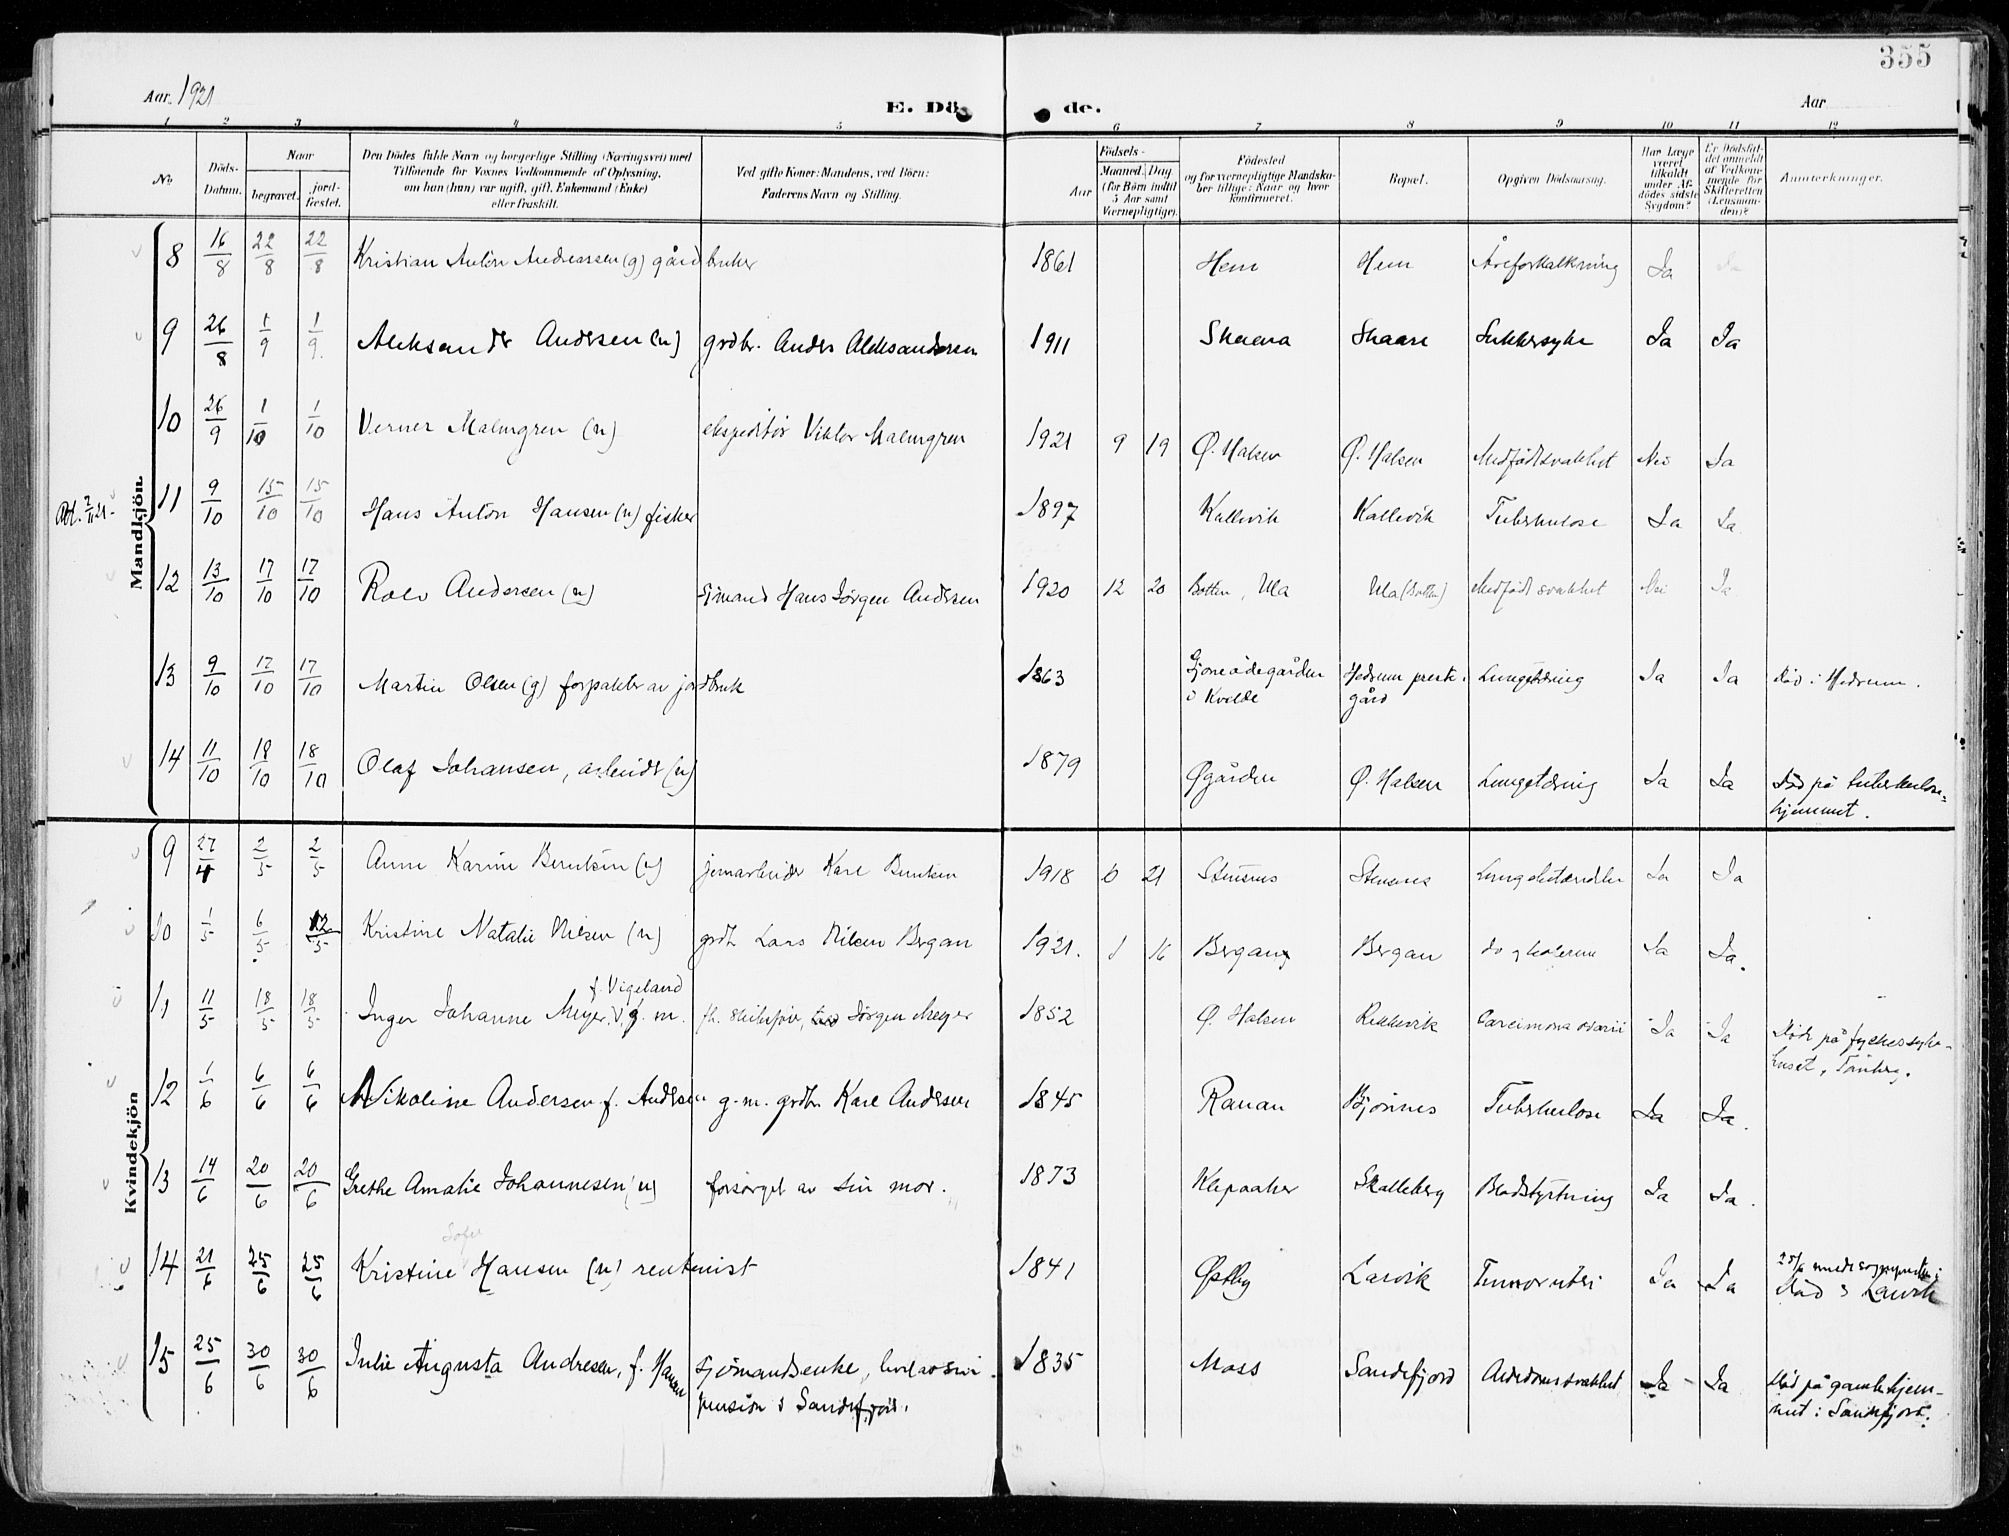 355
Aar. 1921
E. Dö de.
Aar
1 2 3 4 5 6 7 8 9 10 11 12
No.
Döds-Datum.
Naar begravet. jordfæstet.
Den Dödes fulde Navn og borgerlige Stilling (Næringsvei) med Tilföiende for Voxnes Vedkommende af Oplysning, om han (hun) var ugift, gift, Enkemand (Enke) eller fraskilt.
Ved gifte Koner: Mandens, ved Börn: Faderens Navn og Stilling.
Födsels-
Aar Maaned. Dag. (for Börn indtil 5 Aar samt Værnepligtige).
Födested og for værnepligtige Mandskaber tillige: Naar og hvor konfirmeret.
Bopæl.
Opgiven Dödsaarsag.
Har Læge været tilkaldt under Afdödes sidste Sygdom?
Er Dödsfaldet anmeldt af Vedkommende for Skifteretten (Lensmanden)?
Anmærkninger.
Mandkjön.
8 16/8 22/8 22/8 Kristian Anton Andreassen (g) gårdbruker 1861 Hem Hem Åreforkalkning Ja
9 26/8 1/9 1/9 Aleksander Andersen (u) grdbr. Anders Aleksandersen 1911 Skaara Skaara Sukkersyke Ja Ja
10 26/9 1/10 1/10 Verner Malmgren (u) ekspeditør Viktor Malmgren 1921 9 19 Ø. Halsen Ø. Halsen Medfødt svakhet Nei Ja
11 9/10 15/10 15/10 Hans Anton Hansen (u) fisker 1897 Kallevik Kallevik Tuberkulose Ja Ja
12 13/10 17/10 17/10 Rolv Andersen (u) sjömand Hans Jörgen Andersen 1920 12 20 Botten, Ula Ula (Botten) Medfødt svakhet Nei Ja
13 9/10 17/10 17/10 Martin Olsen (g) forpakter av jordbruk 1863 Gjoneødegården i Kvelde Hedrum prestegård Lungetæring Ja Ja Död i Hedrum.
14 11/10 18/10 18/10 Olaf Johansen, arbeider (u) 1879 Øgården Ø. Halsen Lungetæring Ja Ja Död på tuberkulosehjemmet.
Kvindekjön
9 27/4 2/5 2/5 Anne Karin Berntsen (u) jernarbeider Karl Berntsen 1918 6 21 Stensnes Stensnes Lungebetændelse Ja Ja
10 1/5 6/5 12/5 Kristine Natalie Nilsen (u) grdbr. Lars Nilsen Bergan 1921. 1 16 Bergan Bergan do Ja Ja.
11 11/5 18/5 18/5 Inger Johanne Meyer f. Vigeland g. m. fh. skibsfører Jörgen Meyer 1852 Ø. Halsen Rekkevik Carcimona ovarii Ja Ja Död på fylkessykehuset, Tönsberg.
12 1/6 6/6 6/6 Nikoline Andersen f. Andersen g.m. grdbr. Karl Andersen 1845 Ranan Bjønnes Tuberkulose Ja Ja.
13 14/6 20/6 20/6 Grethe Amalie Johannesen (u) forsørget av sin mor. 1873 Klepaaker Skalleberg Blodstyrtning Ja Ja.
14 21/6 25/6 25/6 Kristine Sofie Hansen (u) rentenist 1841 Østby Larvik Tumor uteri Ja Ja Död i Larvik
15 25/6 30/6 30/6 Julie Augusta Andresen, f. Hansen sjömandsenke, lever av sin pension i Sandefjord. 1835 Moss Sandefjord Alderdomssvakhet Ja Ja Död på gamlehjemmet i Sandefjord.